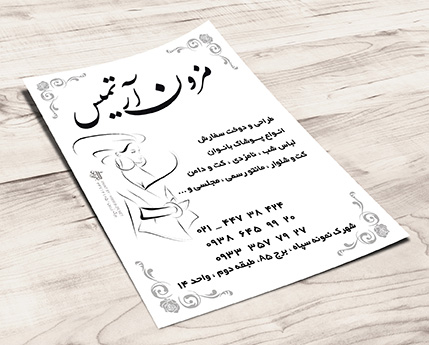 مزون آرتمیس
طراحی و دوخت سفارش
انواع پوشاک بانوان
لباس شب ، نامزدی ، کت و دامن
کت و شلوار ، مانتو رسمی ، مجلسی و ...
۰۲۱ _ ۴۴۷ ۳۸ ۴۲۴
۰۹۳۸ ۶۴۵ ۹۹ ۲۰
۰۹۳۳ ۳۵۷ ۷۹ ۲۷
شهرک نمونه سپاه ، برج ۸۵، طبقه دوم ، واحد ۱۴